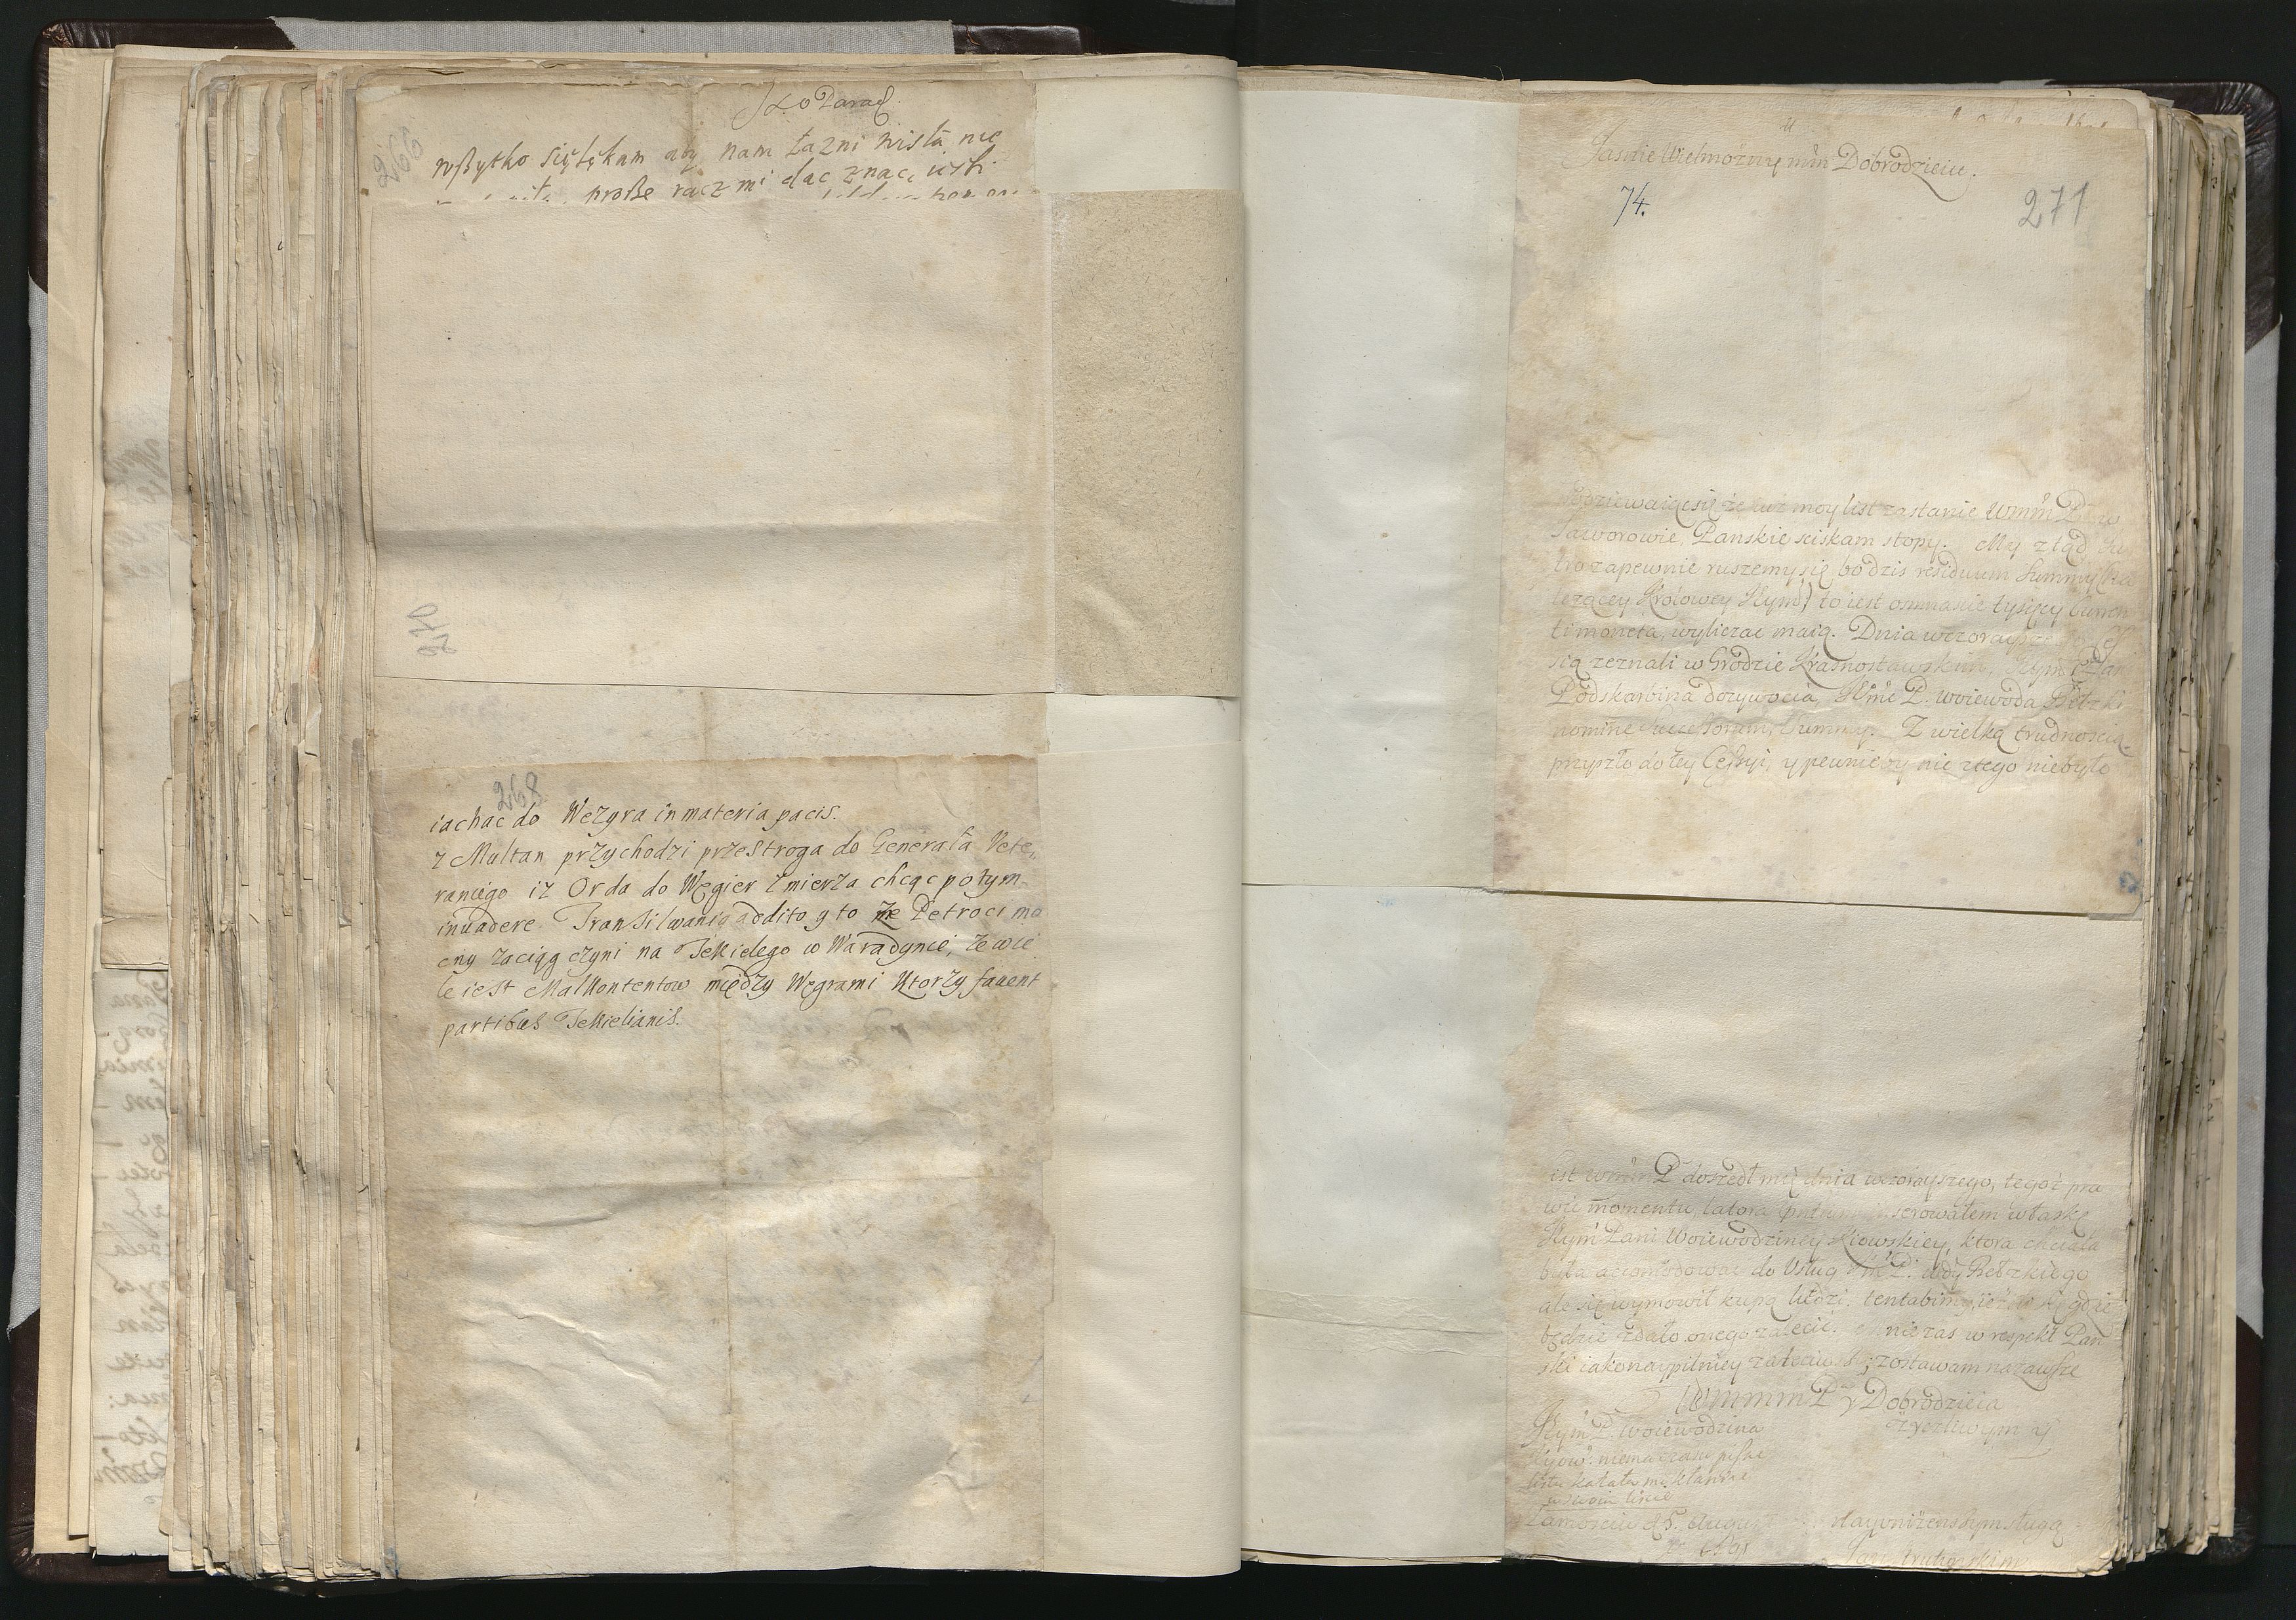 266
wßytko się lękam aby nam łazni nistą nie
proßę racz mi dac znac, ießli
270
268
iachac do Wezyra in materia pacis.
z Multan przychodzi przestroga do Generała Vete„
raniego iz Orda do Węgier zmierza chcąc potym
inuadere Transilwanią addito y to ze Petroci mo
cny zaciąg czyni na Tekielego w Waradynie, ze wie
le iest Malkontentow między Węgrami Ktorzy fauent
partibus Tekielianis.
Jasnie Wielmozny mm Dobrodzieiu.
74.
271
Spodziewaiąc się że iuż moy list zastanie Wmm P. w
Jaworowie, Panskie sciskam stopy. My ztąd Ju
tro zapewnie ruszemy się, bo dzis residuum Summy
lezącey Krolowey Jeym) to iest osmnascie tysięcy curren
ti moneta, wyliczac maią. Dnia wczorayszego
się zeznali w Grodzie Krasnostawskim, Jeym Pani
Podskarbina dozywocia Jmć P. Woiewoda Bełzki
nomine Successorum, Summy. Z wielką trudnoscią
przyszło do tey Cessyi, y pewnie by nic z tego niebyło
List Wmm P. doszedł mię dnia wczorayszego, tegoż pra
wie momentu, latora serowałem w łaskę
Jeym Pani Woiewodziney Kiowskiey, ktora chciała
była accomodowac do Usług Jmć P. Wdy Bełzkiego
ale się wymowił kupą ludzi. tentabimus ieszcze gdzie
będzie zdało onego zalecic. mnie zas w respekt Pan
ski iako naypilniey zaleciwszy, zostawam nazawsze
Wmmm P. y Dobrodzieia
Jeym P. Woiewodzina
zyczliwym y
Kijow. niema czasu pisac
listu kazała mi kłaniac
w swoim liscie
Zamosciu 25. Augu
nayunizenszym sługą